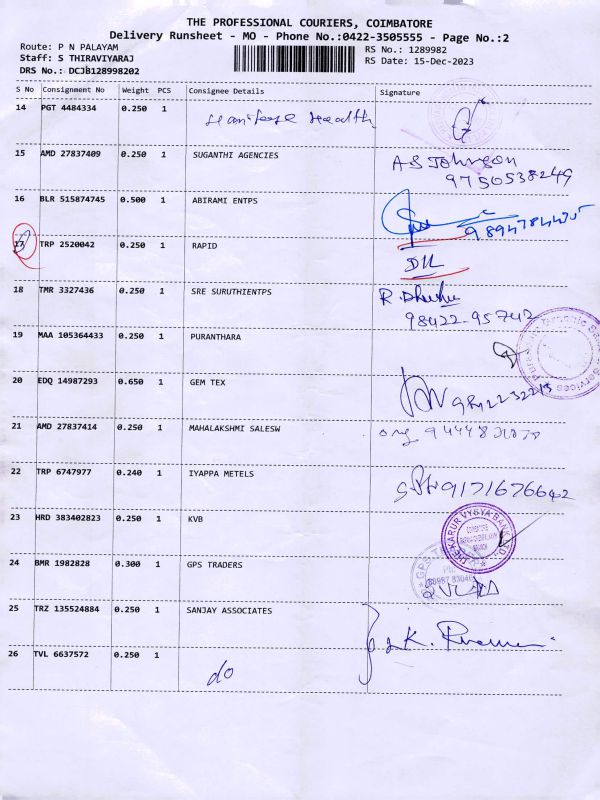 THE PROFESSIONAL COURIERS, COIMBATORE
Delivery Runsheet - MO - Phone No.:0422-3505555 - Page No.:2
Route: P N PALAYAM
RS No.: 1289982
Staff: S THIRAVIYARAJ
RS Date: 15-Dec-2023
DRS No.: DCJB128998202
S No Consignment No Weight PCS Consignee Details Signature
14 PGT 4484334 0.250 1 Health
15 AMD 27837409 0.250 1 SUGANTHI AGENCIES A S Johnson
9750538249
16 BLR 515874745 0.500 1 ABIRAMI ENTPS
17 TRP 2520042 0.250 1 RAPID
18 TMR 3327436 0.250 1 SRE SURUTHIENTPS R.
98422-95742
19 MAA 105364433 0.250 1 PURANTHARA
20 EDQ 14987293 0.650 1 GEM TEX
21 AMD 27837414 0.250 1 MAHALAKSHMI SALESW
22 TRP 6747977 0.240 1 IYAPPA METELS 9171676642
23 HRD 383402823 0.250 1 KVB
THE KARUR VYSYA BANK LTD.
24 BMR 1982828 0.300 1 GPS TRADERS
25 TRZ 135524884 0.250 1 SANJAY ASSOCIATES
26 TVL 6637572 0.250 1 do K.